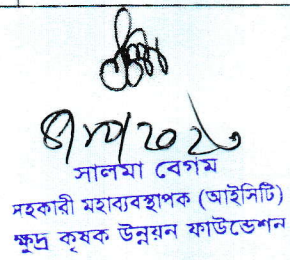 সালমা বেগম
সহকারী মহাব্যবস্থাপক (আইসিটি)
ক্ষুদ্র কৃষক উন্নয়ন ফাউন্ডেশন